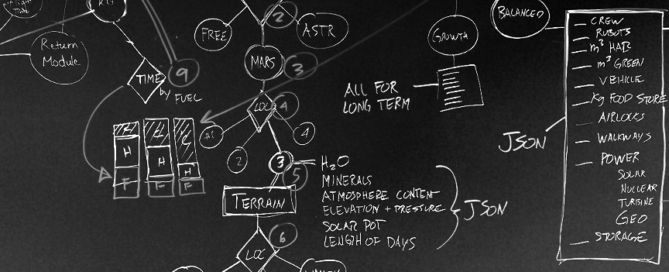 Return
Module
TIME
by
FUEL
9
H
F
H
F
H
F
2
FREE
ASTR
MARS
3
LOC
4
2
4
3
5
TERRAIN
LOC
6
H2O
MINERALS
ATMOSPHERE CONTENT
ELEVATION + PRESSURE
SOLAR POT
LENGTH OF DAYS
JSON
GROWTH
ALL FOR
LONG TERM
BALANCED
JSON
CREW
ROBOTS
m² HAB
m² GREEN
VEHICLE
Kg FOOD STORE
AIRLOCKS
WALKWAYS
POWER
SOLAR
NUCLEAR
TURBINE
GEO
STORAGE